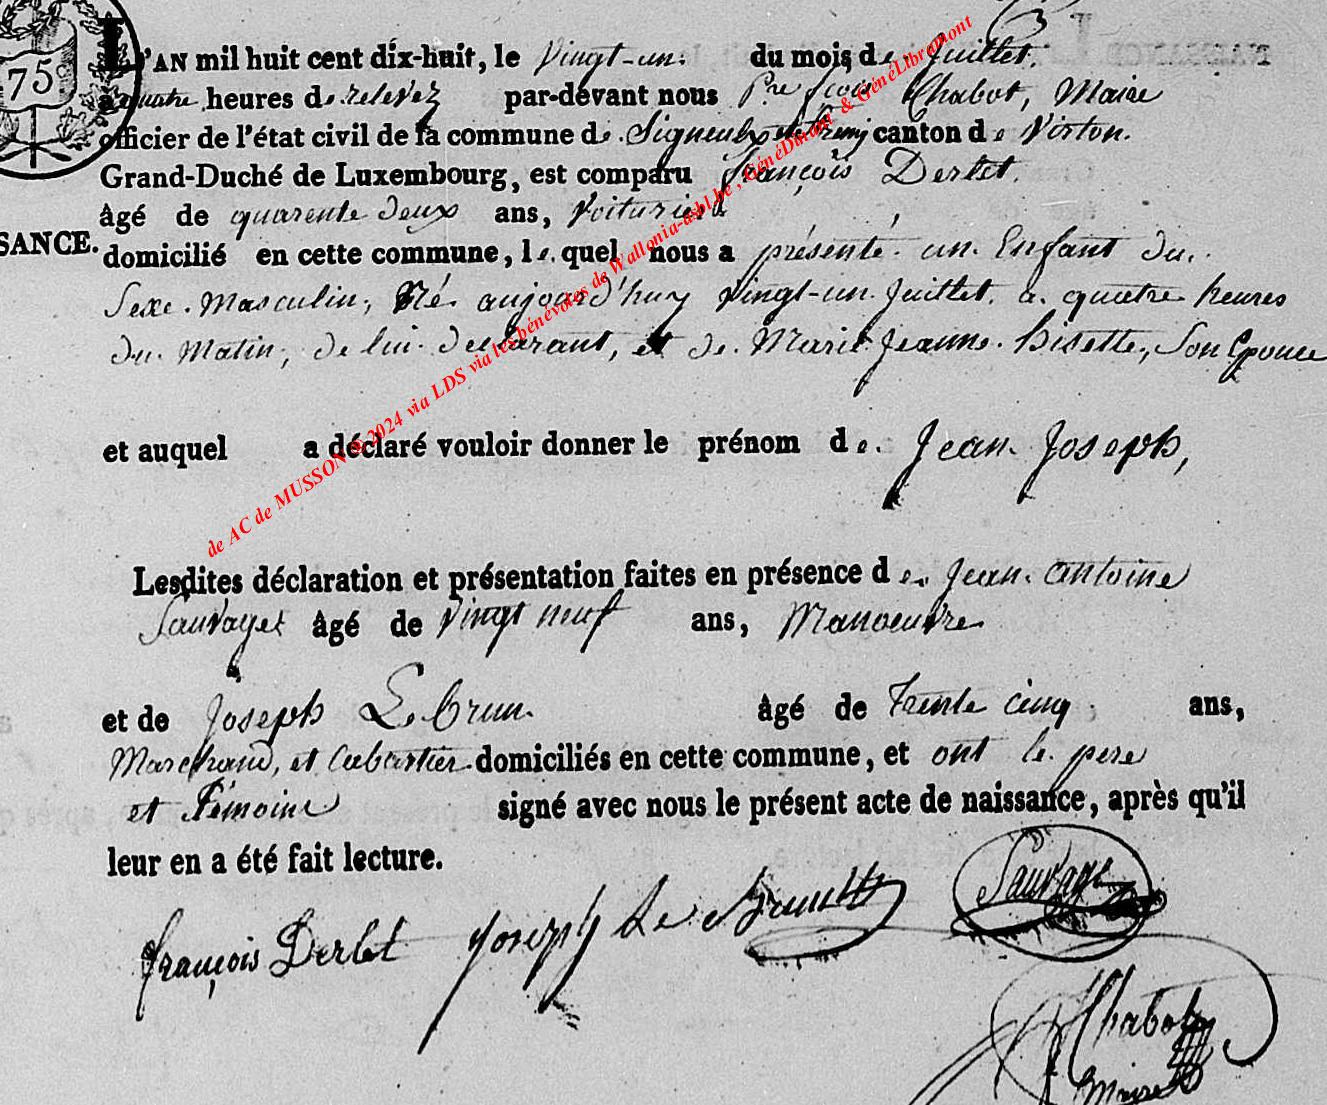 75
L'AN mil huit cent dix-huit, le Vingt-un. du mois de Juillet.
a quatre heures de relevez par-devant nous Pre fçois Chabot, Maire
officier de l'état civil de la commune de Signeulx canton de Virton.
Grand-Duché de Luxembourg, est comparu François Derlet.
âgé de quarente deux ans, Voiturier
SANCE.
domicilié en cette commune, le quel nous a présenté un Enfant du
Sexe Masculin, Né aujourd'huy Vingt-un Juillet a quatre heures
du Matin, de lui declarant, et de Marie Jeanne Bisette, Son Epouce
et auquel a déclaré vouloir donner le prénom de Jean Joseph,
Lesdites déclaration et présentation faites en présence de Jean antoine
Sauvaget âgé de Vingt neuf ans, Manoeuvre
et de Joseph Le brun âgé de Trente cinq ans,
Marchand, et Cabartier domiciliés en cette commune, et ont le pere
et Témoins signé avec nous le présent acte de naissance, après qu'il
leur en a été fait lecture.
François Derlet Joseph Le Sauvage
Chabot
Maire
de AC de MUSSON © 2024 via LDS via les bénévoles de Wallonia-asbl.be, GénéDinant & GénéLibramont